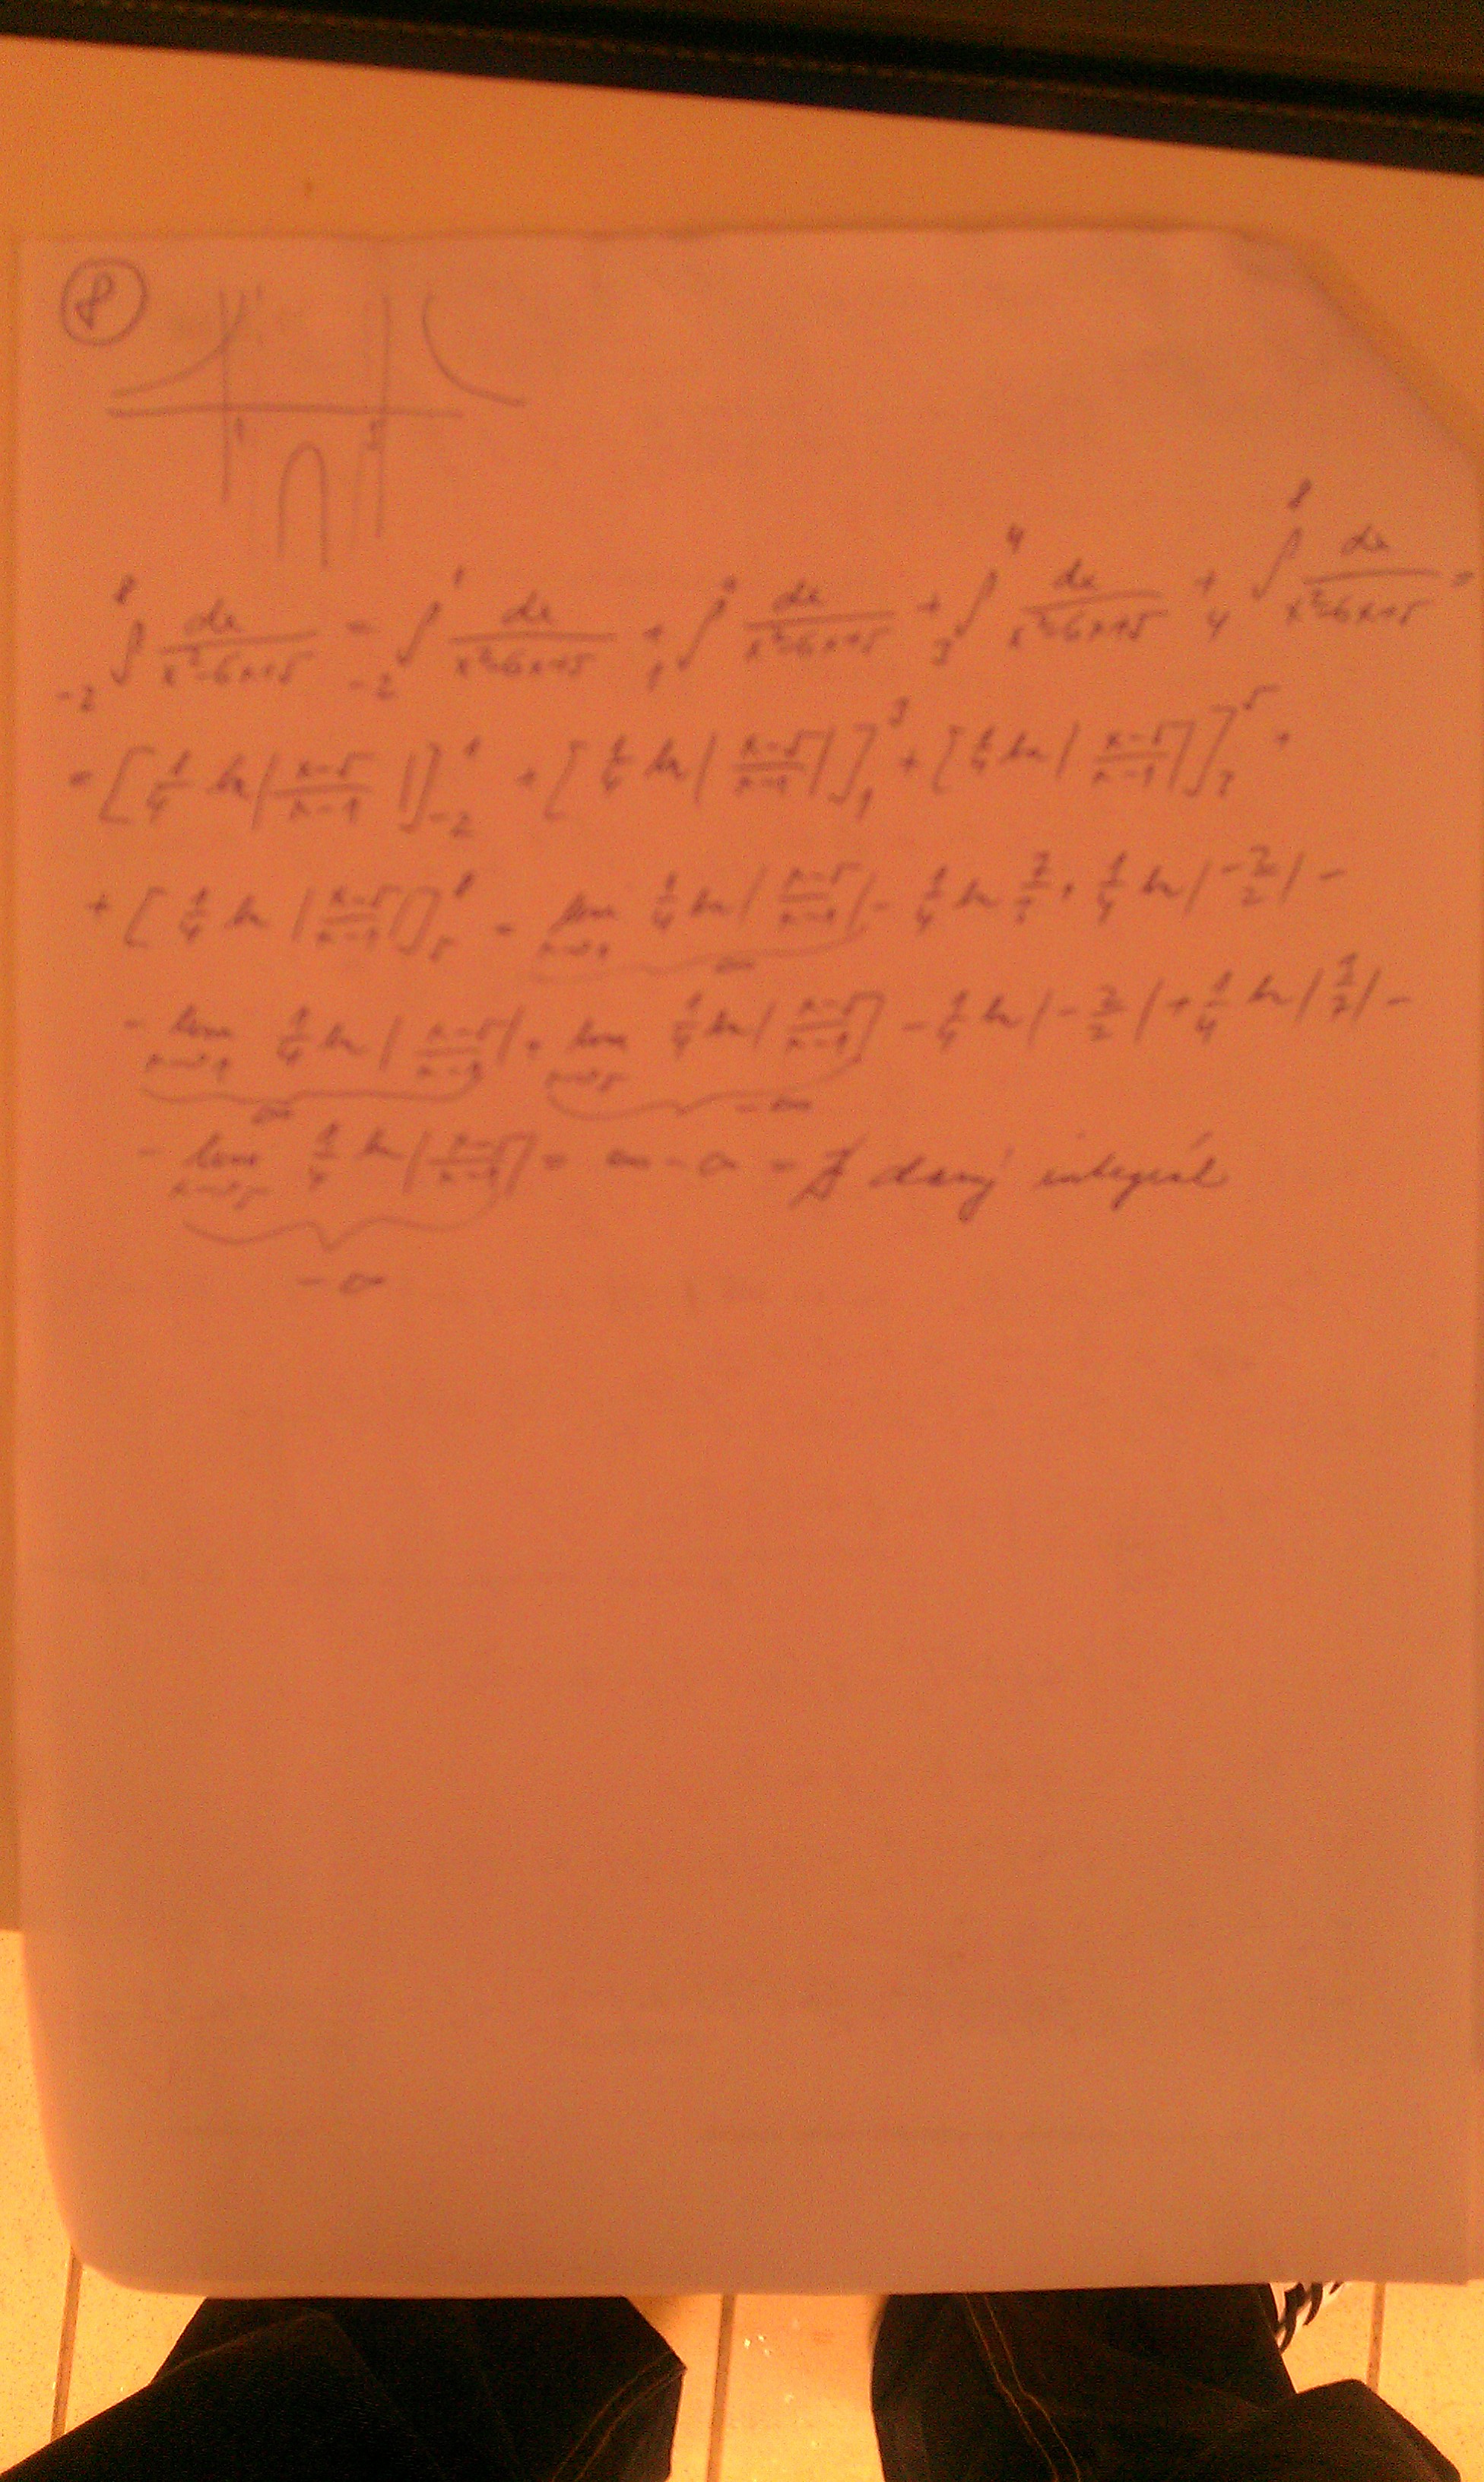 8
1 5
∫_{-2}^{8} dx/(x²-6x+5) = ∫_{-2}^{1} dx/(x²-6x+5) + ∫_{1} dx/(x²-6x+5) + ∫_{3}^{4} dx/(x²-6x+5) + ∫_{4}^{8} dx/(x²-6x+5) =
= [1/4 ln|(x-5)/(x-1)|]_{-2}^{1} + [1/4 ln|(x-5)/(x-1)|]_{1}^{3} + [1/4 ln|(x-5)/(x-1)|]_{3}^{5} +
+ [1/4 ln|(x-5)/(x-1)|]_{5}^{8} = lim_{x→1} 1/4 ln|(x-5)/(x-1)| - 1/4 ln 7/3 + 1/4 ln|-2/2| -
∞
- lim_{x→1} 1/4 ln|(x-5)/(x-1)| + lim_{x→5} 1/4 ln|(x-5)/(x-1)| - 1/4 ln|-2/2| + 1/4 ln|3/7| -
∞ -∞
- lim_{x→5} 1/4 ln|(x-5)/(x-1)| = ∞ - ∞ = ∄ daný integrál
-∞